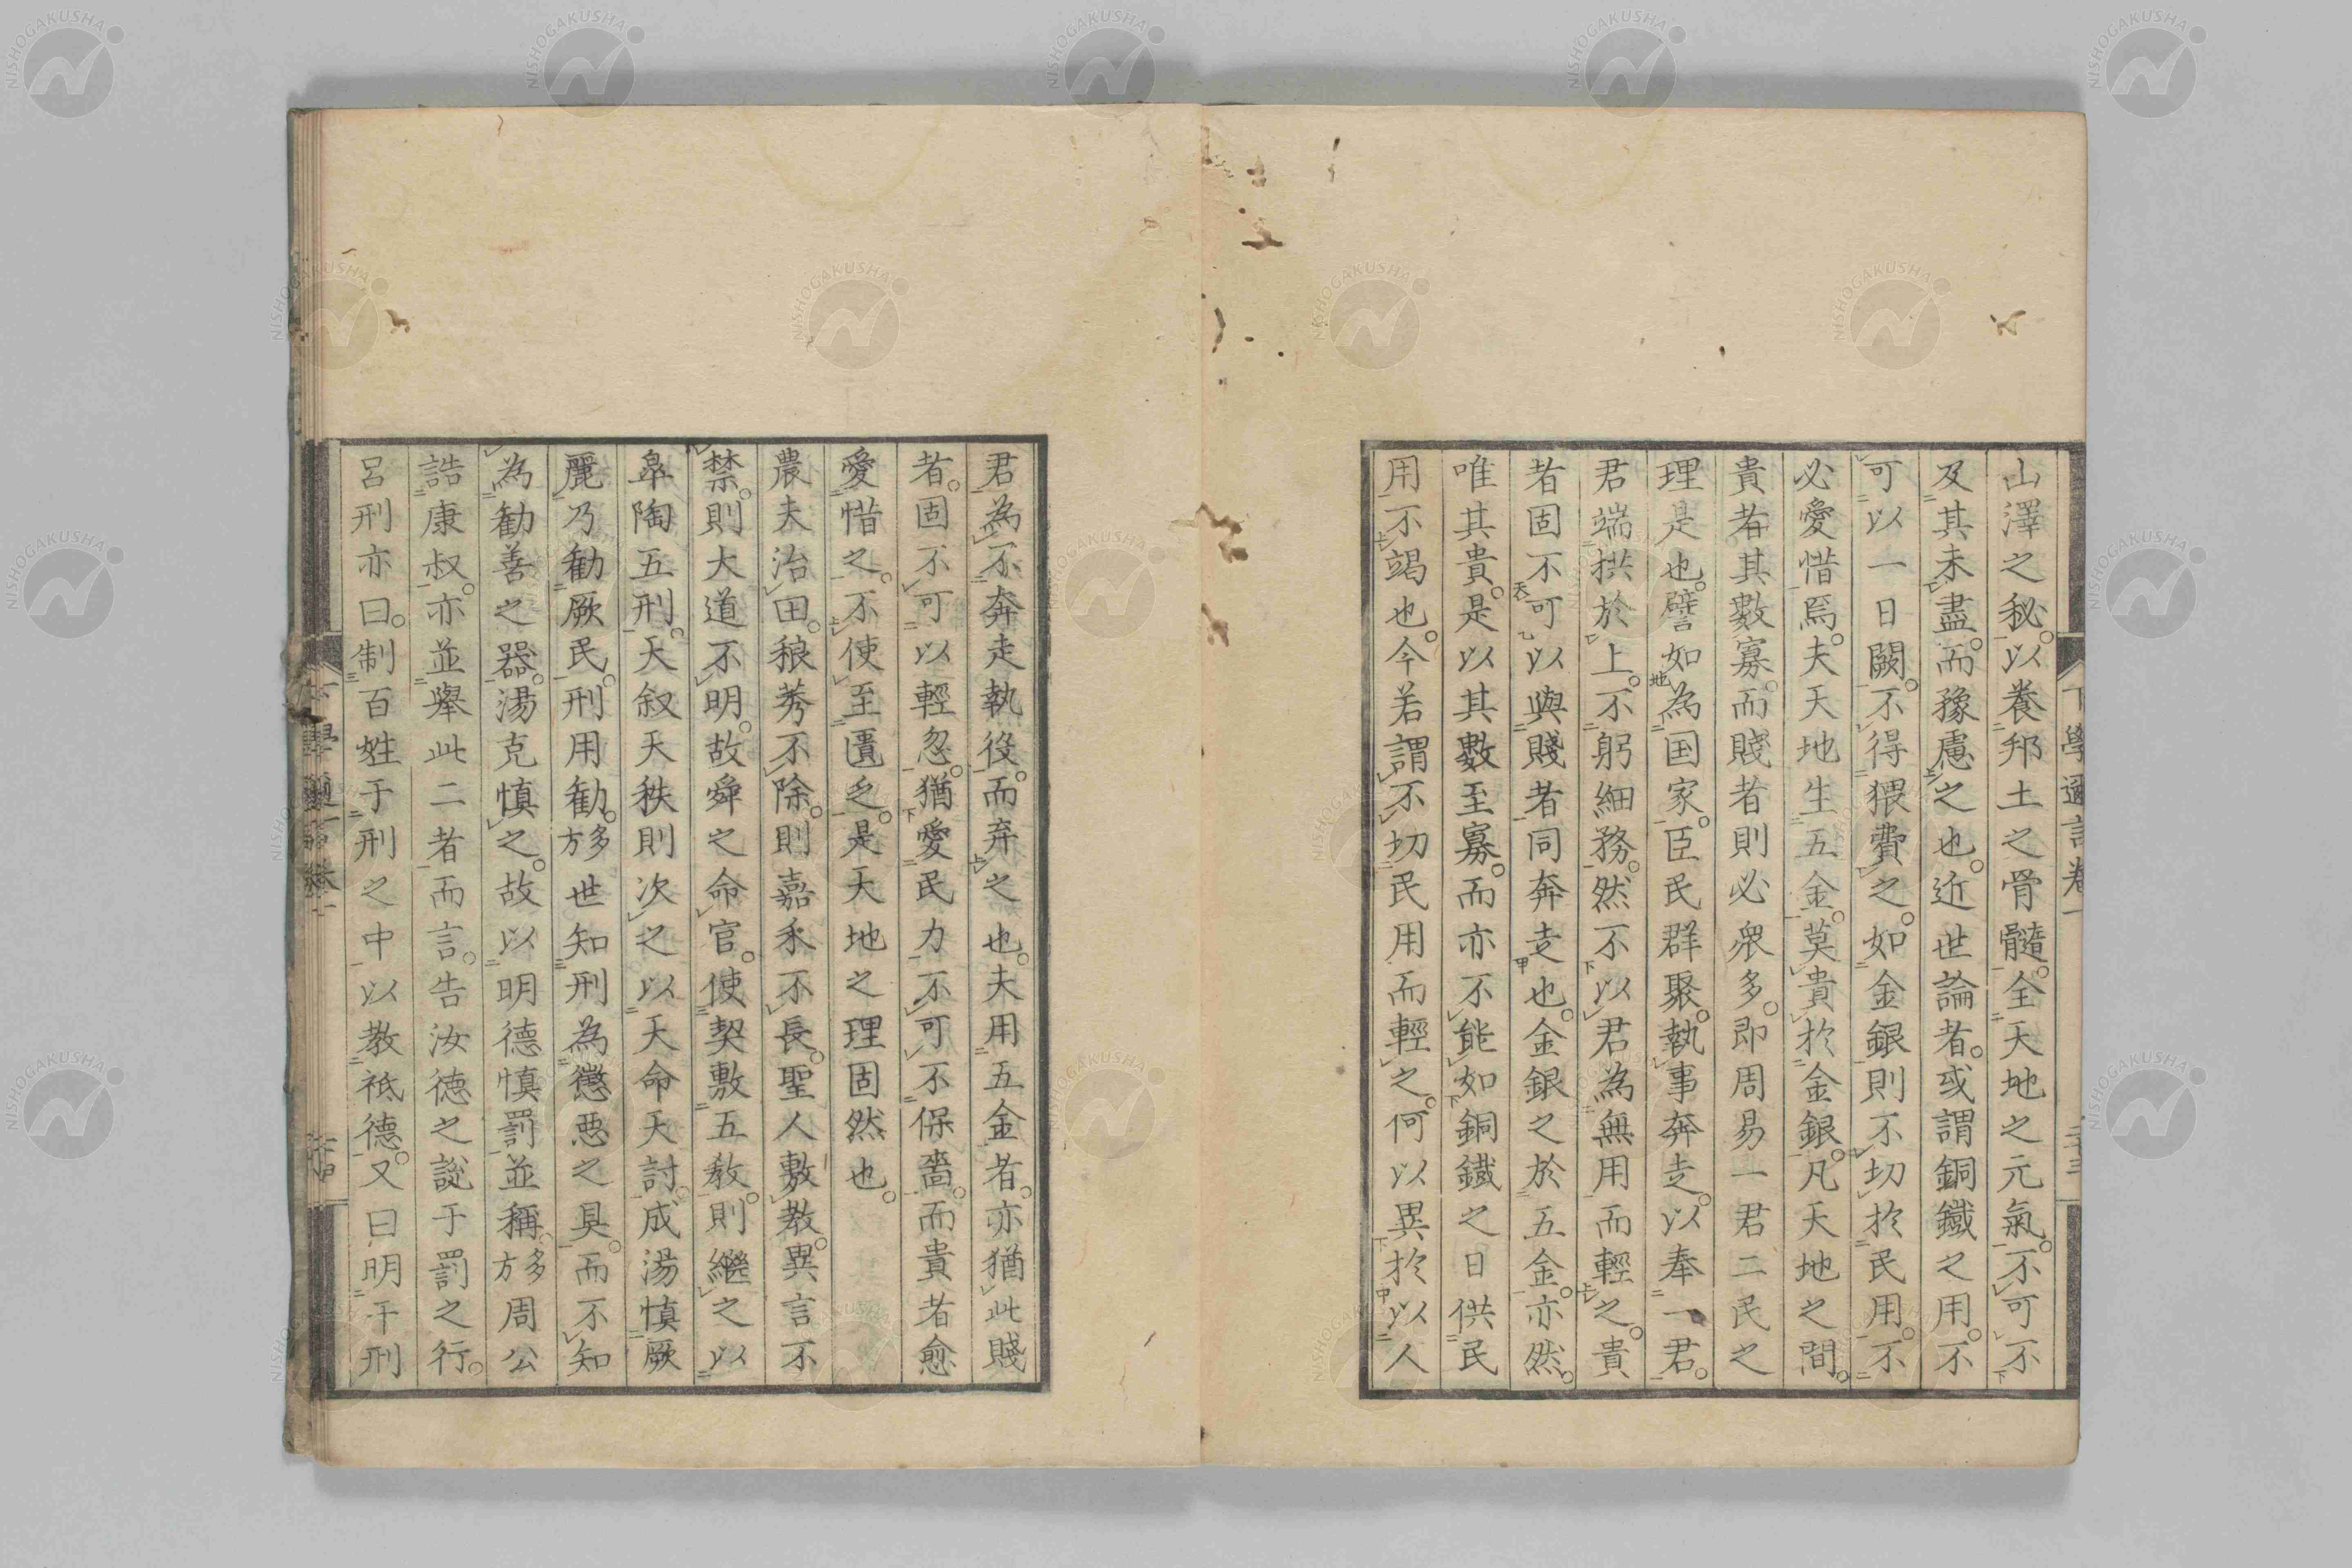 山澤之秘。以養邦土之骨髓。全天地之元氣。不可不
及其未盡。而豫慮之也。近世論者。或謂銅鐵之用。不
可以一日闕。不得猥費之。如金銀則不切於民用。不
必愛惜焉。夫天地生五金。莫貴於金銀。凡天地之間。
貴者其數寡。而賤者則必衆多。即周易一君二民之
理是也。譬如為国家。臣民群聚。執事奔走。以奉一君。
君端拱於上。不躬細務。然不以君為無用而輕之。貴
者固不可以與賤者同奔走也。金銀之於五金。亦然。
唯其貴。是以其數至寡。而亦不能如銅鐵之日供民
用不竭也。今若謂不切民用而輕之。何以異於以人
君為不奔走執役。而弃之也。夫用五金者。亦猶此賤
者。固不可以輕忽。猶愛民力不可不保嗇。而貴者愈
愛惜之。不使至匱乏。是天地之理固然也。
農夫治田。稂莠不除。則嘉禾不長。聖人敷教。異言不
禁。則大道不明。故舜之命官。使契敷五教。則繼之以
皐陶五刑。天叙天秩則次之以天命天討。成湯慎厥
麗乃勸厥民。刑用勸。多方世知刑為懲惡之具。而不知
為勸善之器。湯克慎之。故以明德慎罰並稱。多方周公
誥康叔。亦並舉此二者而言。告汝德之説于罰之行。
呂刑亦曰。制百姓于刑之中以教祗德。又曰明于刑
下學邇言卷一
NISHOGAKUSHA